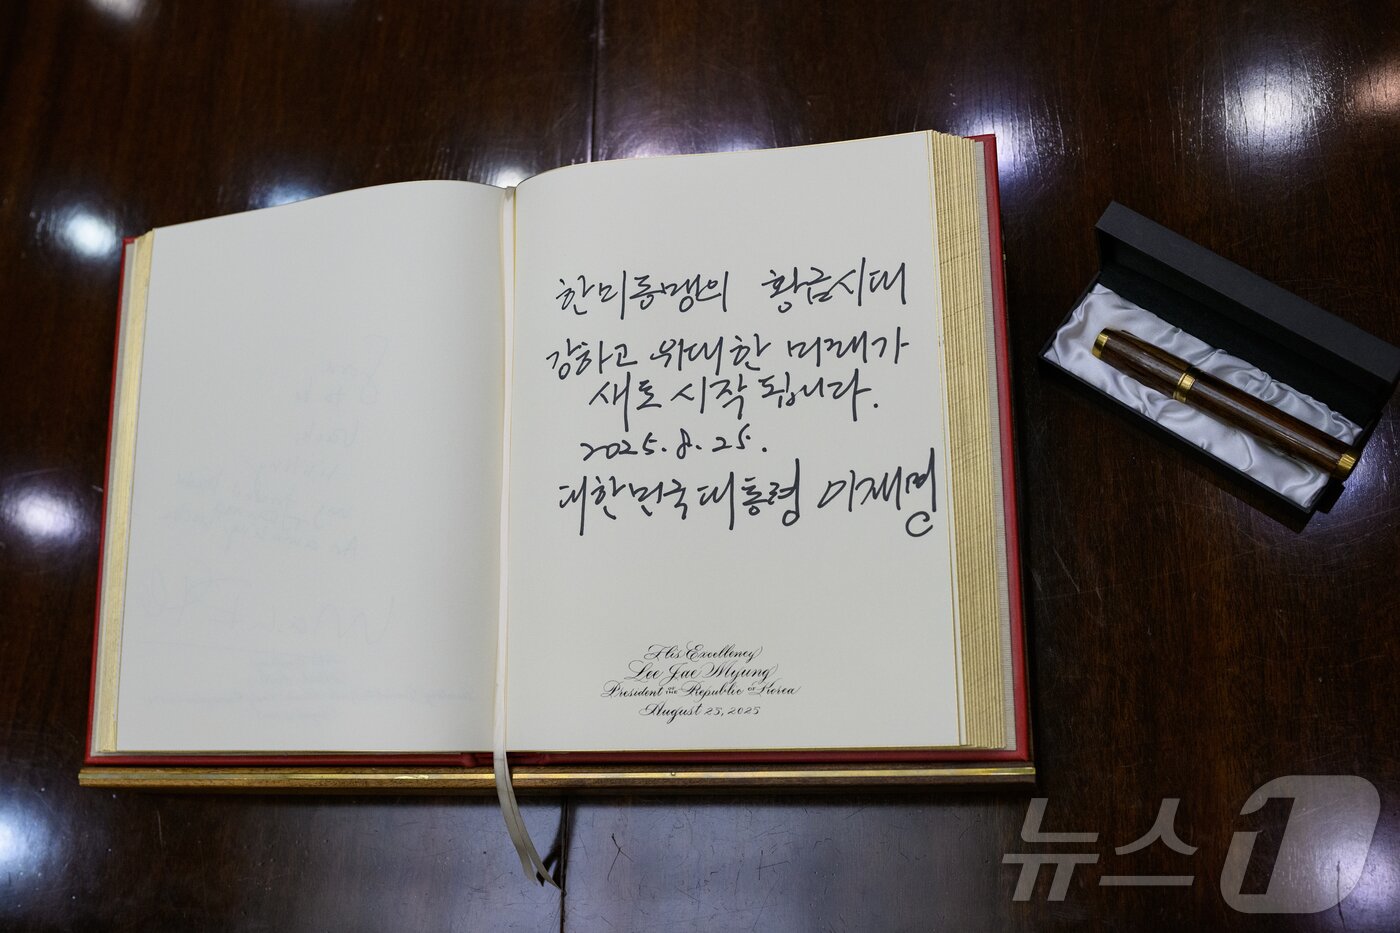 한미동맹의 황금시대
강하고 위대한 미래가
새로 시작 됩니다.
2025. 8. 25.
대한민국 대통령 이재명
His Excellency
Lee Jae Myung
President of the Republic of Korea
August 25, 2025
뉴스1